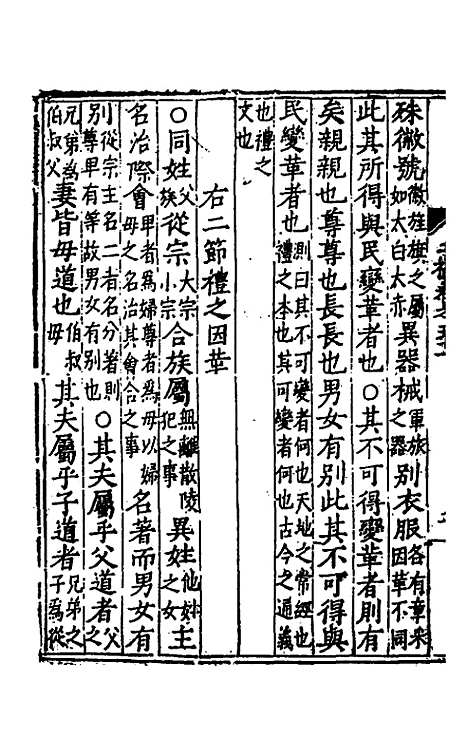 殊徽號徽旌旗之屬如太白太赤異器械軍旅之器别衣服各有章采因革不同
此其所得與民變革者也○其不可得變革者則有
矣親親也尊尊也長長也男女有别此其不可得與
民變革者也測曰其不可變者何也天地之常經也禮之本也其可變者何也古今之通義
也禮之文也
右二節禮之因革
○同姓父族從宗大宗小宗合族屬無離散陵犯之事異姓他姓之女主
名治際會卑者為婦尊者為母以婦母之名治其會合之事名著而男女有
别從宗主名二者名分著則尊卑有等故男女有别也○其夫屬乎父道者父之
兄弟為伯叔父妻皆母道也伯叔母其夫屬乎子道者兄弟之子為從